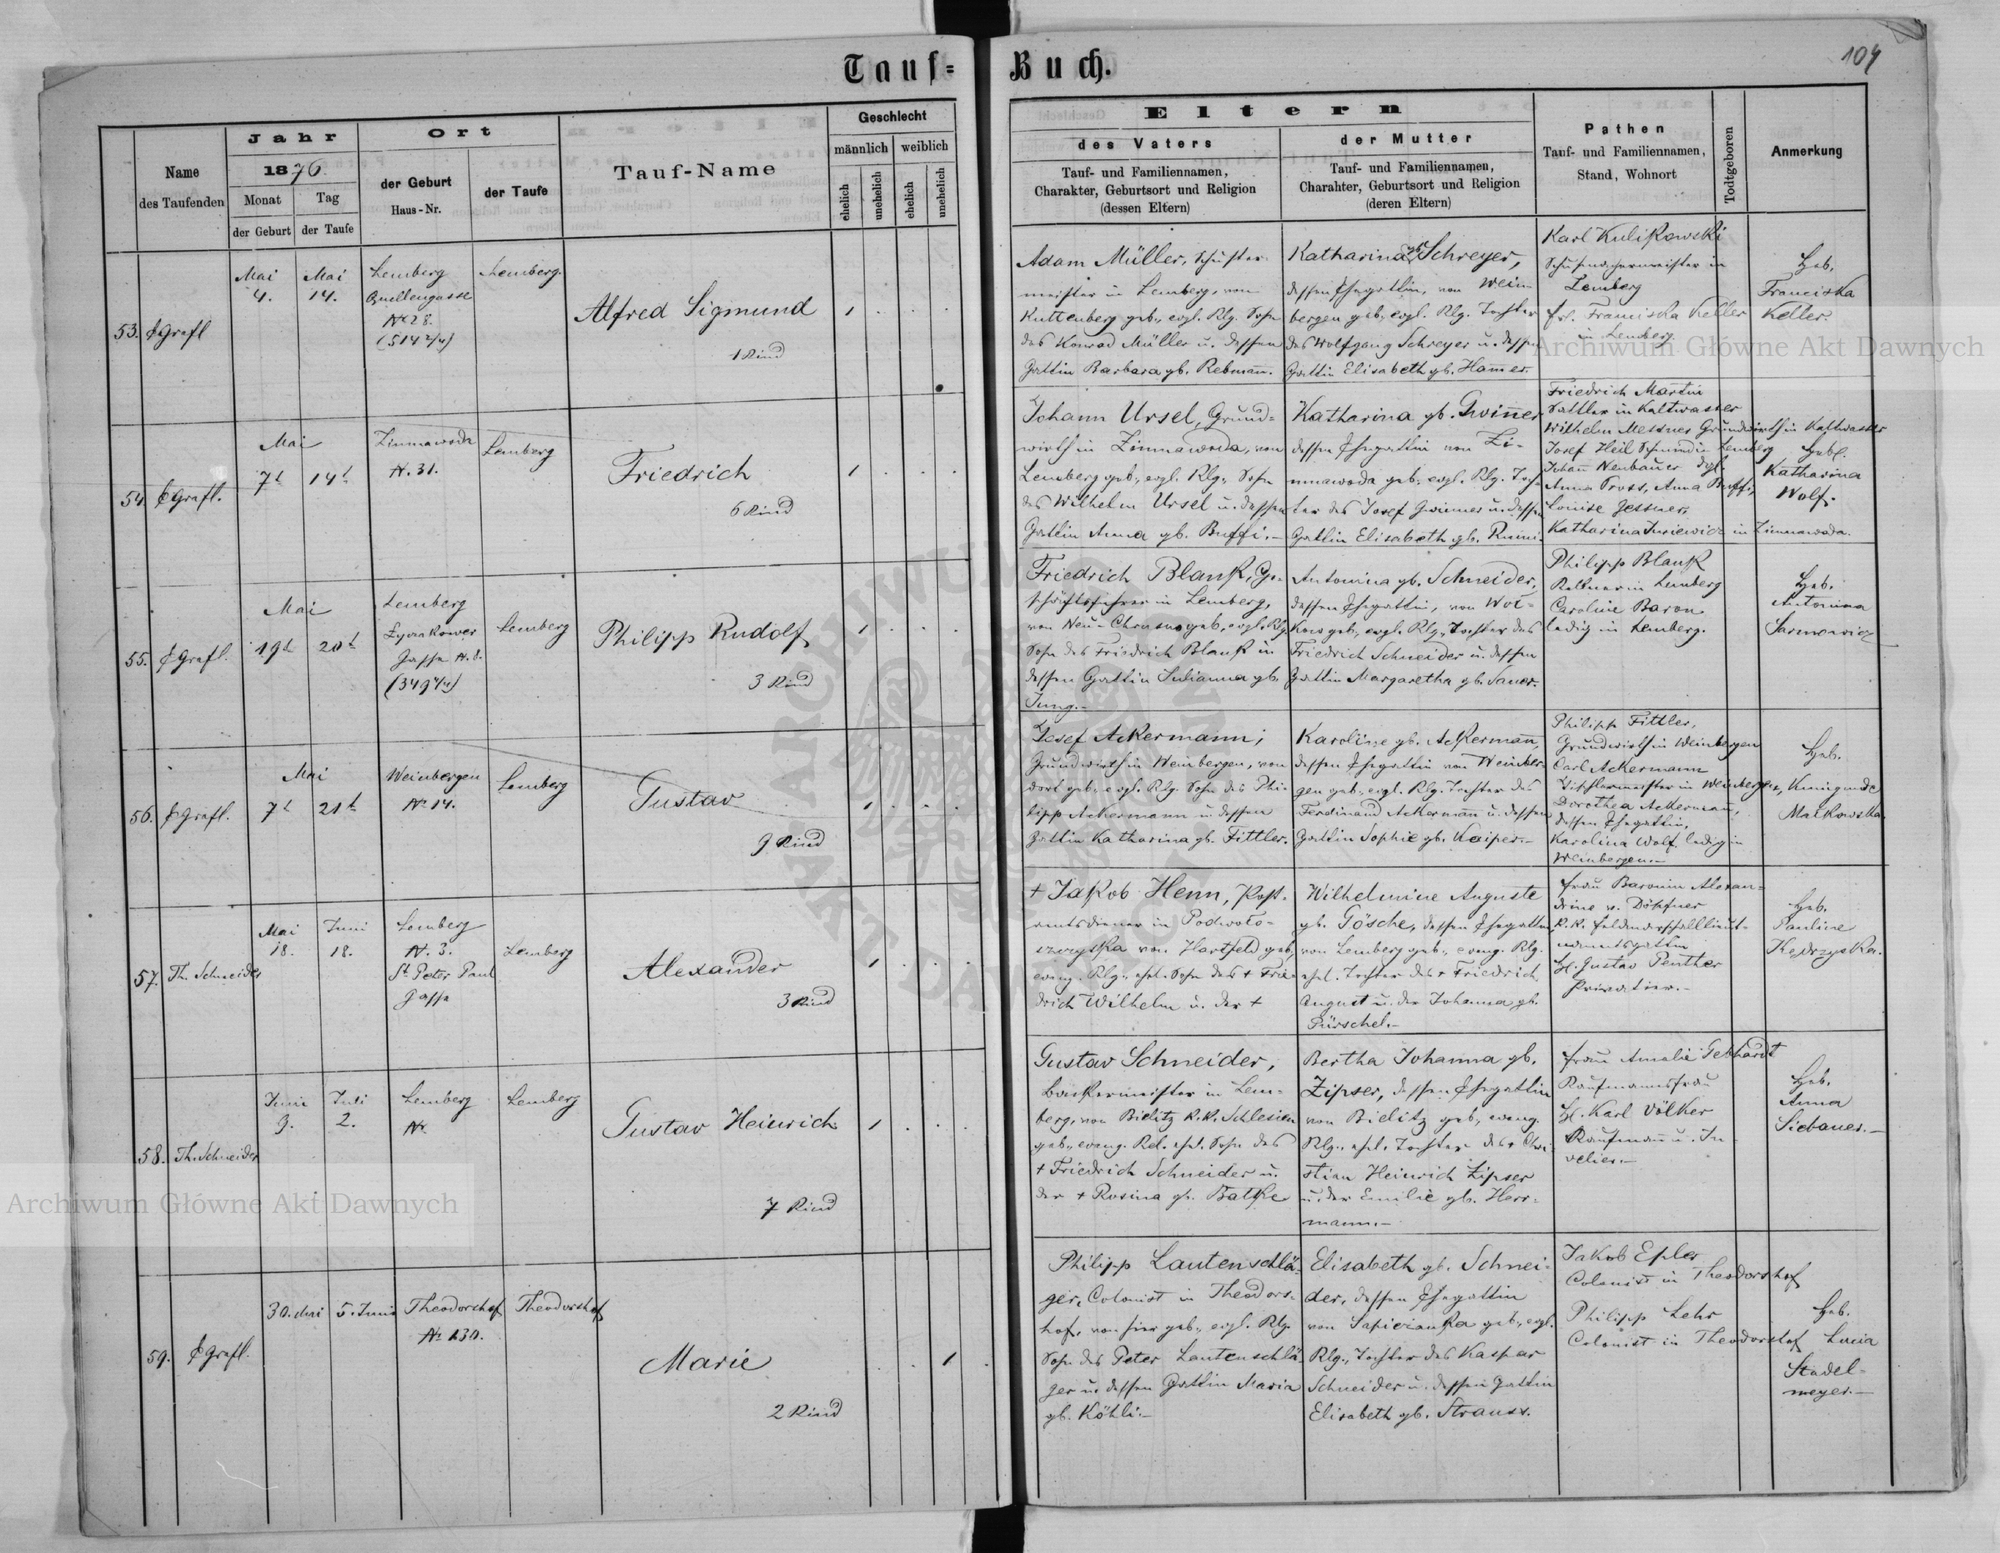 Tauf=
Buch.
104
Name
des Taufenden
Jahr
1876.
Monat
Tag
der Geburt
der Taufe
Ort
der Geburt
Haus-Nr.
der Taufe
Tauf-Name
Geschlecht
männlich
weiblich
ehelich
unehelich
ehelich
unehelich
Eltern
des Vaters
Tauf- und Familiennamen,
Charakter, Geburtsort und Religion
(dessen Eltern)
der Mutter
Tauf- und Familiennamen,
Charahter, Geburtsort und Religion
(deren Eltern)
Pathen
Tauf- und Familiennamen,
Stand, Wohnort
Todtgeboren
Anmerkung
53.
Mai
4.
Mai
14.
Lemberg
Quellengasse
No 28.
(514 2/4)
Lemberg.
Alfred Sigmund
1 Kind
1
Adam Müller, Schuster-
meister in Lemberg, von
Kuttenberg geb., evgl. Rlg. Sohn
des Konrad Müller u. dessen
Gattin Barbara gb. Rebmann.
Katharina gb. Schreyer,
dessen Ehegattin, von Wein-
bergen geb., evgl. Rlg. Tochter
des Wolfgang Schreyer u. dessen
Gattin Elisabeth gb. Hamer.
Karl Kulikowski
Schuhmachermeister in
Lemberg
Frl. Franciska Keller
in Lemberg.
Heb.
Franciska
Keller.
54.
Mai
7t
14t
Zimnawoda
N. 31.
Lemberg
Friedrich
6 Kind
1
Johann Ursel, Grund=
wirth in Zimnawoda, von
Lemberg geb., evgl. Rlg., Sohn
des Wilhelm Ursel u. dessen
Gattin Anna gb. Buffi.-
Katharina gb. Gwinner
dessen Ehegattin von Zi-
mnawoda geb., evgl. Rlg. Toch-
ter des Josef Gwinner u. dessen
Gattin Elisabeth gb.
Friedrich Martin
Sattler in Kaltwasser
Wilhelm Messner Grundwirth in Kaltwasser
Josef Heil Schmied in Lemberg
Johann Neubauer dgl.
Anna Pross, Anna Buffi,
Louise Gessner,
Katharina Juriewicz in Zimnawoda.
Hebe.
Katharina
Wolf.
55.
Mai
19t
20t
Lemberg
Lyczakower
Gasse N. 8.
(349 4/4)
Lemberg
Philipp Rudolf
3 Kind
1
Friedrich Blank, Ge-
schäftsführer in Lemberg,
von Neu-Chrusno geb., evgl. Rlg.
Sohn des Friedrich Blank u
dessen Gattin Julianna gb.
Jung.-
Antonina gb. Schneider,
dessen Ehegattin, von Woi-
kow geb., evgl. Rlg., Tochter des
Friedrich Schneider u. dessen
Gattin Margaretha gb. Sauer.
Philipp Blank
Kellner in Lemberg
Caroline Baron
ledig in Lemberg.
Heb.
Antonina
Sarnowicz
56.
Mai
7t
21t
Weinbergen
No 14.
Lemberg
Gustav
9. Kind
1
Josef Ackermann;
Grundwirth in Weinbergen, von
dort geb., evgl. Rlg. Sohn des Phi-
lipp Ackermann u dessen
Gattin Katharina gb. Fittler.
Karoline gb. Ackermann,
dessen Ehegattin von Weinber-
gen geb., evgl. Rlg. Tochter des
Ferdinand Ackermann u. dessen
Gattin Sophie gb. Kaiper.-
Philipp Fittler,
Grundwirth in Weinbergen
Carl Ackermann
Tischlermeister in Weinbergen,
Dorothea Ackermann,
dessen Ehegattin,
Karolina Wolf, ledig in
Weinbergen.-
Heb.
Kunigunde
Malkowska.
57.
Th. Schneider
Mai
18.
Juni
18.
Lemberg
N. 3.
St Peter Paul
Gasse
Lemberg
Alexander
3 Kind
1
+ Jakob Henn, Post-
amtsdiener in Podwolo-
czyska von Hartfeld geb,
evang. Rlg., ehel. Sohn des + Frie-
drich Wilhelm u. der +
Wilhelmine Auguste
gb. Gösche, dessen Ehegattin
von Lemberg geb., evang. Rlg.
ehel. Tochter des + Friedrich
August u. der Johanna gb.
Pürschel.-
Frau Baronin Alexan-
drine v. Döpfner
K. K. Feldmarschalllieut-
nantsgattin
H. Gustav Penther
Privatier.-
Heb.
Pauline
Kedrzyska.
58.
Th. Schneider
Juni
9.
Juli
2.
Lemberg
No
Lemberg
Gustav Heinrich
7 Kind
1
Gustav Schneider,
Bäckermeister in Lem-
berg, von Bielitz K.K. Schlesien
geb., evang. Rel. ehel. Sohn des
+ Friedrich Schneider u.
der + Rosina gb. Bathe
Bertha Johanna gb.
Zipser, dessen Ehegattin
von Bielitz geb., evang.
Rlg., ehel. Tochter des + Chri-
stian Heinrich Zipser
u. der Emilie gb. Herr-
mann.-
Frau Amalie Gebhardt
Kaufmannsfrau
H. Karl Völker
Kaufmann u. Ju-
velier.-
Heb.
Anna
Siebauer.-
59.
30. Mai
5. Juni
Theodorshof
No 130.
Theodorshof
Marie
2 Kind
1
Philipp Lautenschlä-
ger, Colonist in Theodors-
hof, von hier geb., evgl. Rlg.
Sohn des Peter Lautenschlä-
ger u. dessen Gattin Maria
gb. Köhli.-
Elisabeth gb. Schnei-
der, dessen Ehegattin
von Sapiezanka geb., evgl.
Rlg., Tochter des Kaspar
Schneider u. dessen Gattin
Elisabeth gb. Strauss.
Jakob Epler
Colonist in Theodorshof
Philipp Lehr
Colonist in Theodorshof
Heb.
Lucia
Stadel-
meyer.-
Archiwum Główne Akt Dawnych
Archiwum Główne Akt Dawnych